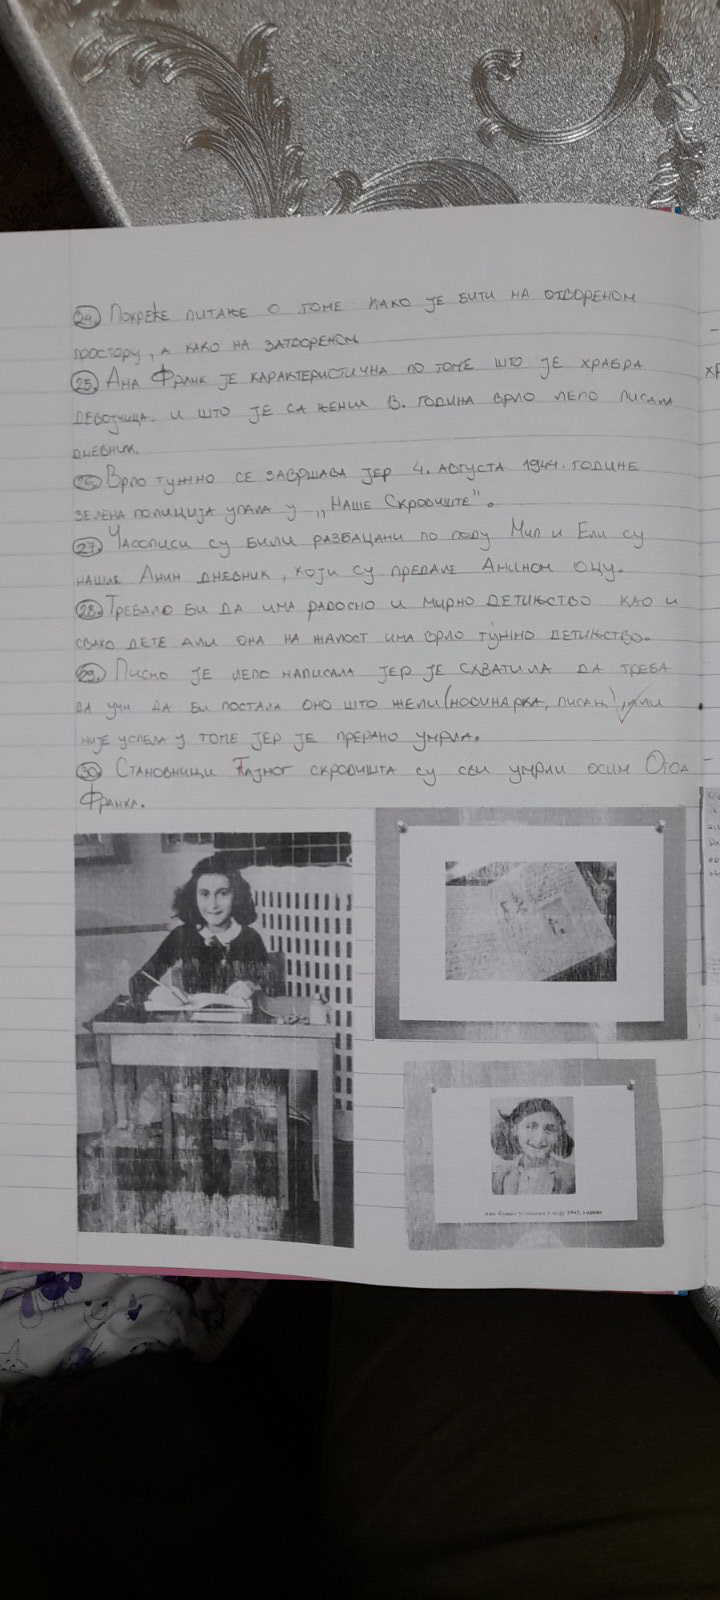 24. Покреће питање о томе како је бити на отвореном
простору, а како на затвореном
25. Ана Франк је карактеристична по томе што је храбра
девојчица. и што је са њених 13. година врло лепо писала
дневник.
26. Врло тужно се завршава јер 4. августа 1944. године
зелена полиција упала у „Наше Скровиште".
27. Часописи су били разбацани по поду Мип и Ели су
нашле Анин дневник, који су предале Анином оцу.
28. Требало би да има радосно и мирно детињство као и
свако дете али она на жалост има врло тужно детињство.
29. Писмо је лепо написала јер је схватила да треба
да учи да би постала оно што жели (новинарка, писац), али
није успела у томе јер је прерано умрла.
30. Становници Тајног скровишта су сви умрли осим Ота
Франка.